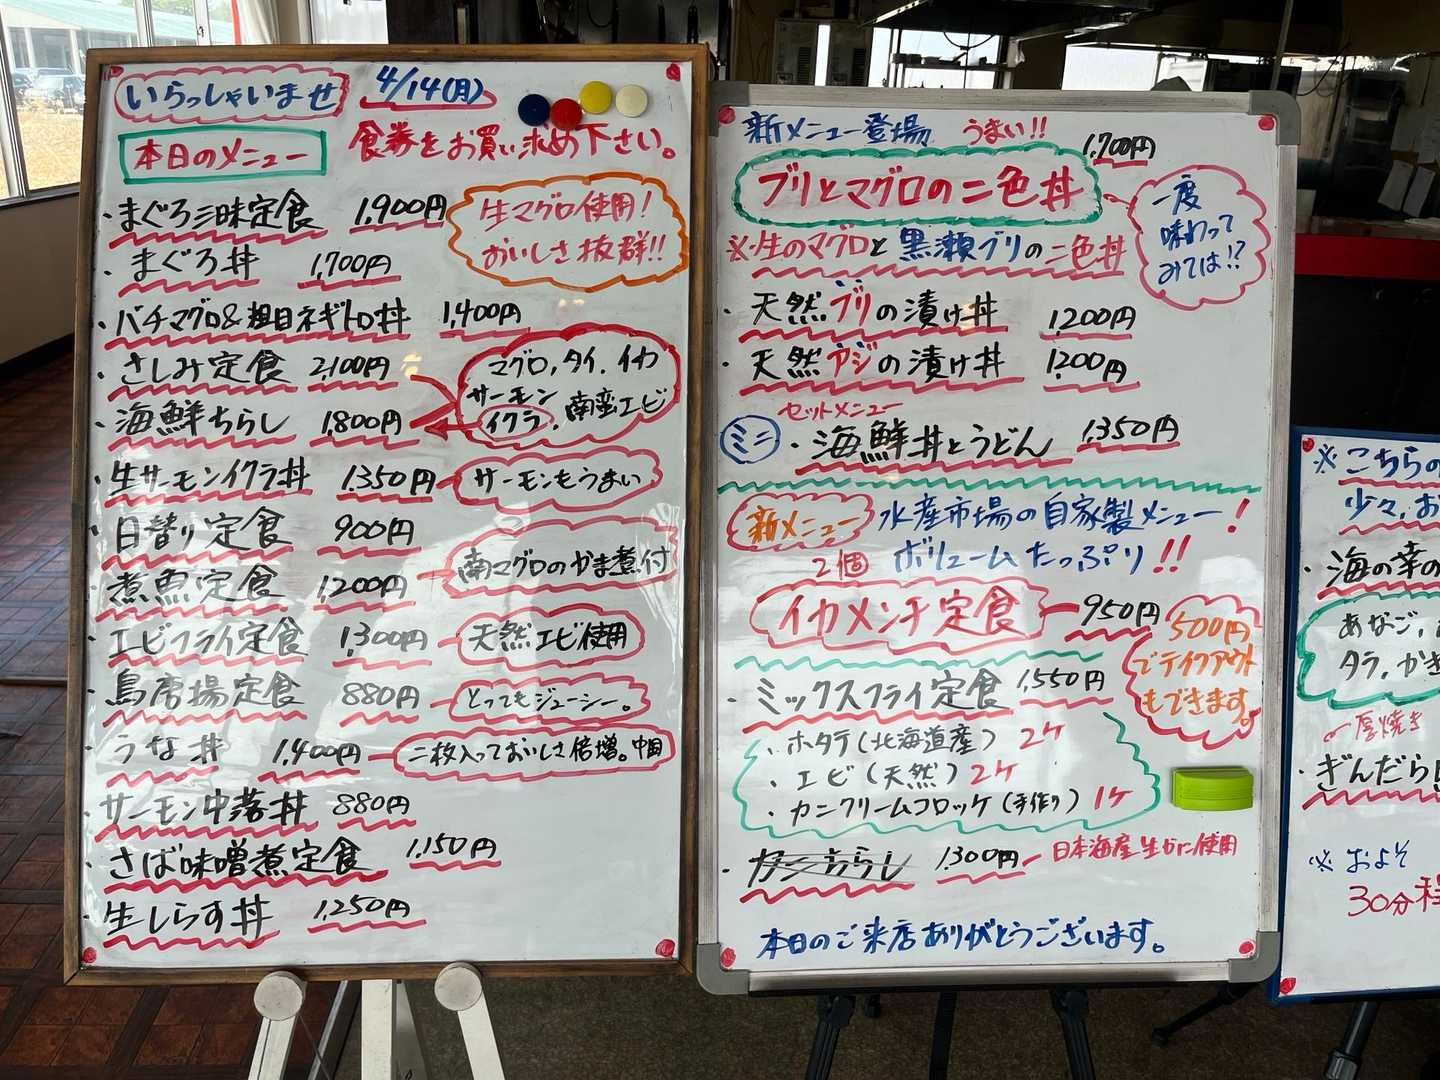 いらっしゃいませ 4/14(月)
本日のメニュー 食券をお買い求め下さい。
・まぐろ三昧定食 1,900円
生マグロ使用!
おいしさ抜群!!
・まぐろ丼 1,700円
・バチマグロ&粗目ネギトロ丼 1,400円
・さしみ定食 2,100円
マグロ,タイ,イカ
サーモン
イクラ,南蛮エビ
・海鮮ちらし 1,800円
・生サーモンイクラ丼 1,350円 サーモンもうまい
・日替り定食 900円
・煮魚定食 1,200円 南マグロのかま煮付
・エビフライ定食 1,300円 天然エビ使用
・鳥唐揚定食 880円 とってもジューシー。
・うな丼 1,400円 二枚入っておいしさ倍増。中国
・サーモン中落丼 880円
・さば味噌煮定食 1,150円
・生しらす丼 1,250円
新メニュー登場 うまい!!
ブリとマグロの二色丼 1,700円
※生のマグロと黒瀬ブリの二色丼
一度
味わって
みては!?
・天然ブリの漬け丼 1,200円
・天然アジの漬け丼 1,200円
セットメニュー
ミニ・海鮮丼とうどん 1,350円
新メニュー 水産市場の自家製メニュー!
2個 ボリュームたっぷり!!
イカメンチ定食 950円
500円
でテイクアウト
もできます。
・ミックスフライ定食 1,550円
・ホタテ(北海道産) 2ケ
・エビ(天然) 2ケ
・カニクリームコロッケ(手作り) 1ケ
・カニちらし 1,300円 日本海産生かに使用
本日のご来店ありがとうございます。
※こちらの
少々,お
・海の幸の
あなご,
タラ,かき
厚焼き
・ぎんだら
※およそ
30分程